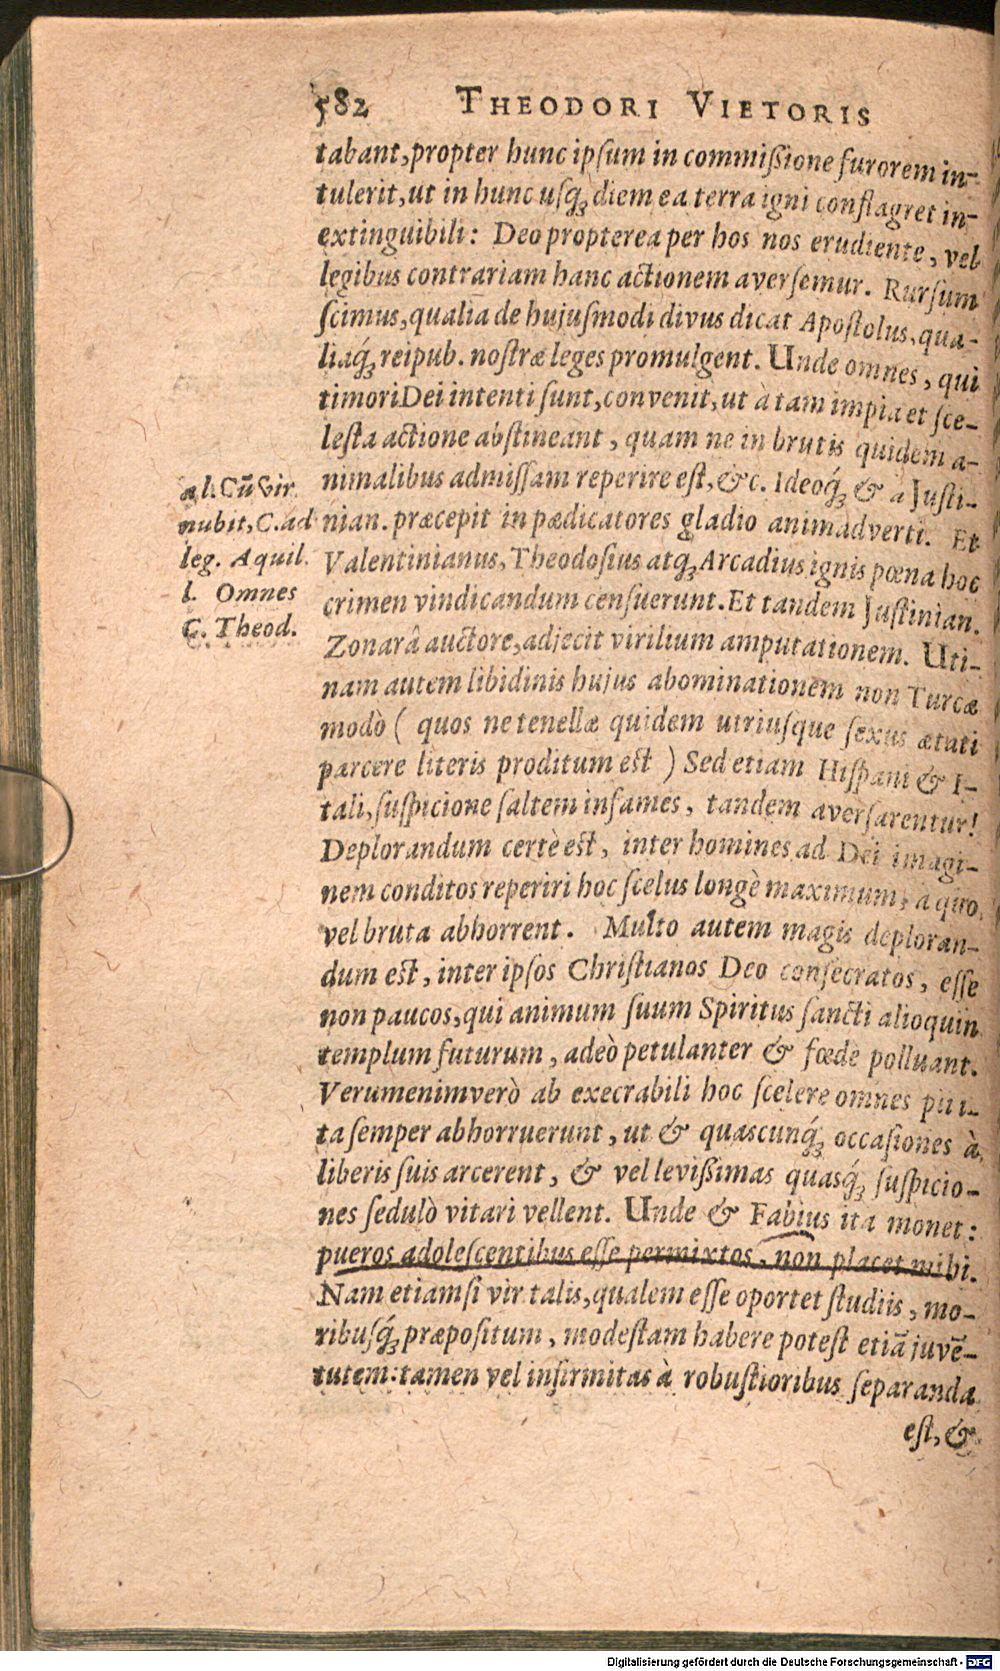 582 THEODORI VIETORIS
tabant, propter hunc ipſum in commißione furorem in-
tulerit, ut in hunc uſq́ꝫ diem ea terra igni conflagret in-
extinguibili: Deo propterea per hos nos erudiente, vel
legibus contrariam hanc actionem averſemur. Rurſum
ſcimus, qualia de hujuſmodi divus dicat Apoſtolus, qua-
liaq́ꝫ reipub. noſtræ leges promulgent. Unde omnes, qui
timori Dei intenti ſunt, convenit, ut à tam impia et ſce-
leſta actione abſtineant, quam ne in brutis quidem a-
nimalibus admiſſam reperire eſt, &c. Ideoq́ꝫ & a Juſti-
nian. præcepit in pædicatores gladio animadverti. Et
Valentinianus, Theodoſius atq́ꝫ Arcadius ignis pœna hoc
crimen vindicandum cenſuerunt. Et tandem Juſtinian.
Zonarâ auctore, adjecit virilium amputationem. Uti-
nam autem libidinis hujus abominationem non Turcæ
modò ( quos ne tenellæ quidem utriuſque ſexus ætati
parcere literis proditum eſt ) Sed etiam Hiſpani & I-
tali, ſuſpicione ſaltem infames, tandem averſarentur!
Deplorandum certè eſt, inter homines ad Dei imagi-
nem conditos reperiri hoc ſcelus longè maximum, à quo
vel bruta abhorrent. Multo autem magis deploran-
dum eſt, inter ipſos Chriſtianos Deo conſecratos, eſſe
non paucos, qui animum ſuum Spiritus ſancti alioquin
templum futurum, adeò petulanter & fœdè polluant.
Verumenimverò ab execrabili hoc ſcelere omnes pii i-
ta ſemper abhorruerunt, ut & quascunq́ꝫ occaſiones à
liberis ſuis arcerent, & vel levißimas quasq́ꝫ ſuſpicio-
nes ſedulò vitari vellent. Unde & Fabius ita monet:
pueros adoleſcentibus eſſe permixtos, non placet mihi.
Nam etiamſi vir talis, qualem eſſe oportet ſtudiis, mo-
ribuſq́ꝫ præpoſitum, modeſtam habere poteſt etiā juvē-
tutem: tamen vel infirmitas à robuſtioribus ſeparanda
eſt, &
a l. Cū vir
nubit, C. ad
leg. Aquil.
l. Omnes
C. Theod.
Digitalisierung gefördert durch die Deutsche Forschungsgemeinschaft - DFG